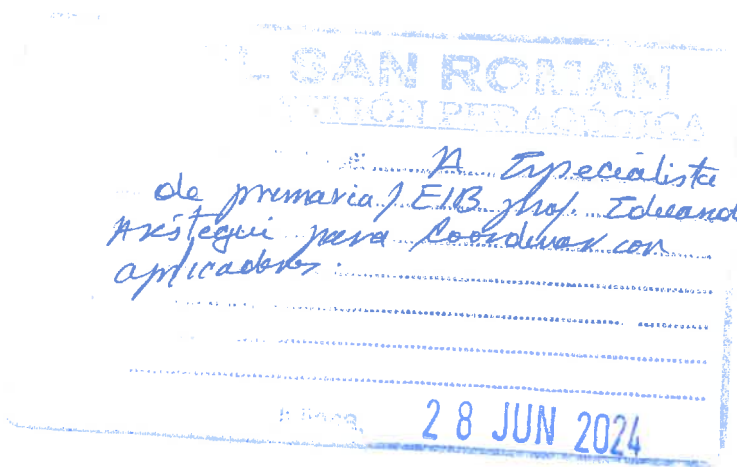 L SAN ROMAN
PEDAGÓGICA
A Especialista
de primaria / EIB prof. Eduardo
Aréstegui para Coordinar con
aplicadores.
28 JUN 2024